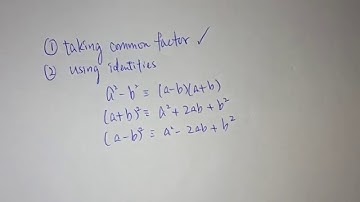 ① taking common factor ✓
② using identities
a² - b² ≡ (a-b)(a+b)
(a+b)² ≡ a² + 2ab + b²
(a-b)² ≡ a² - 2ab + b²